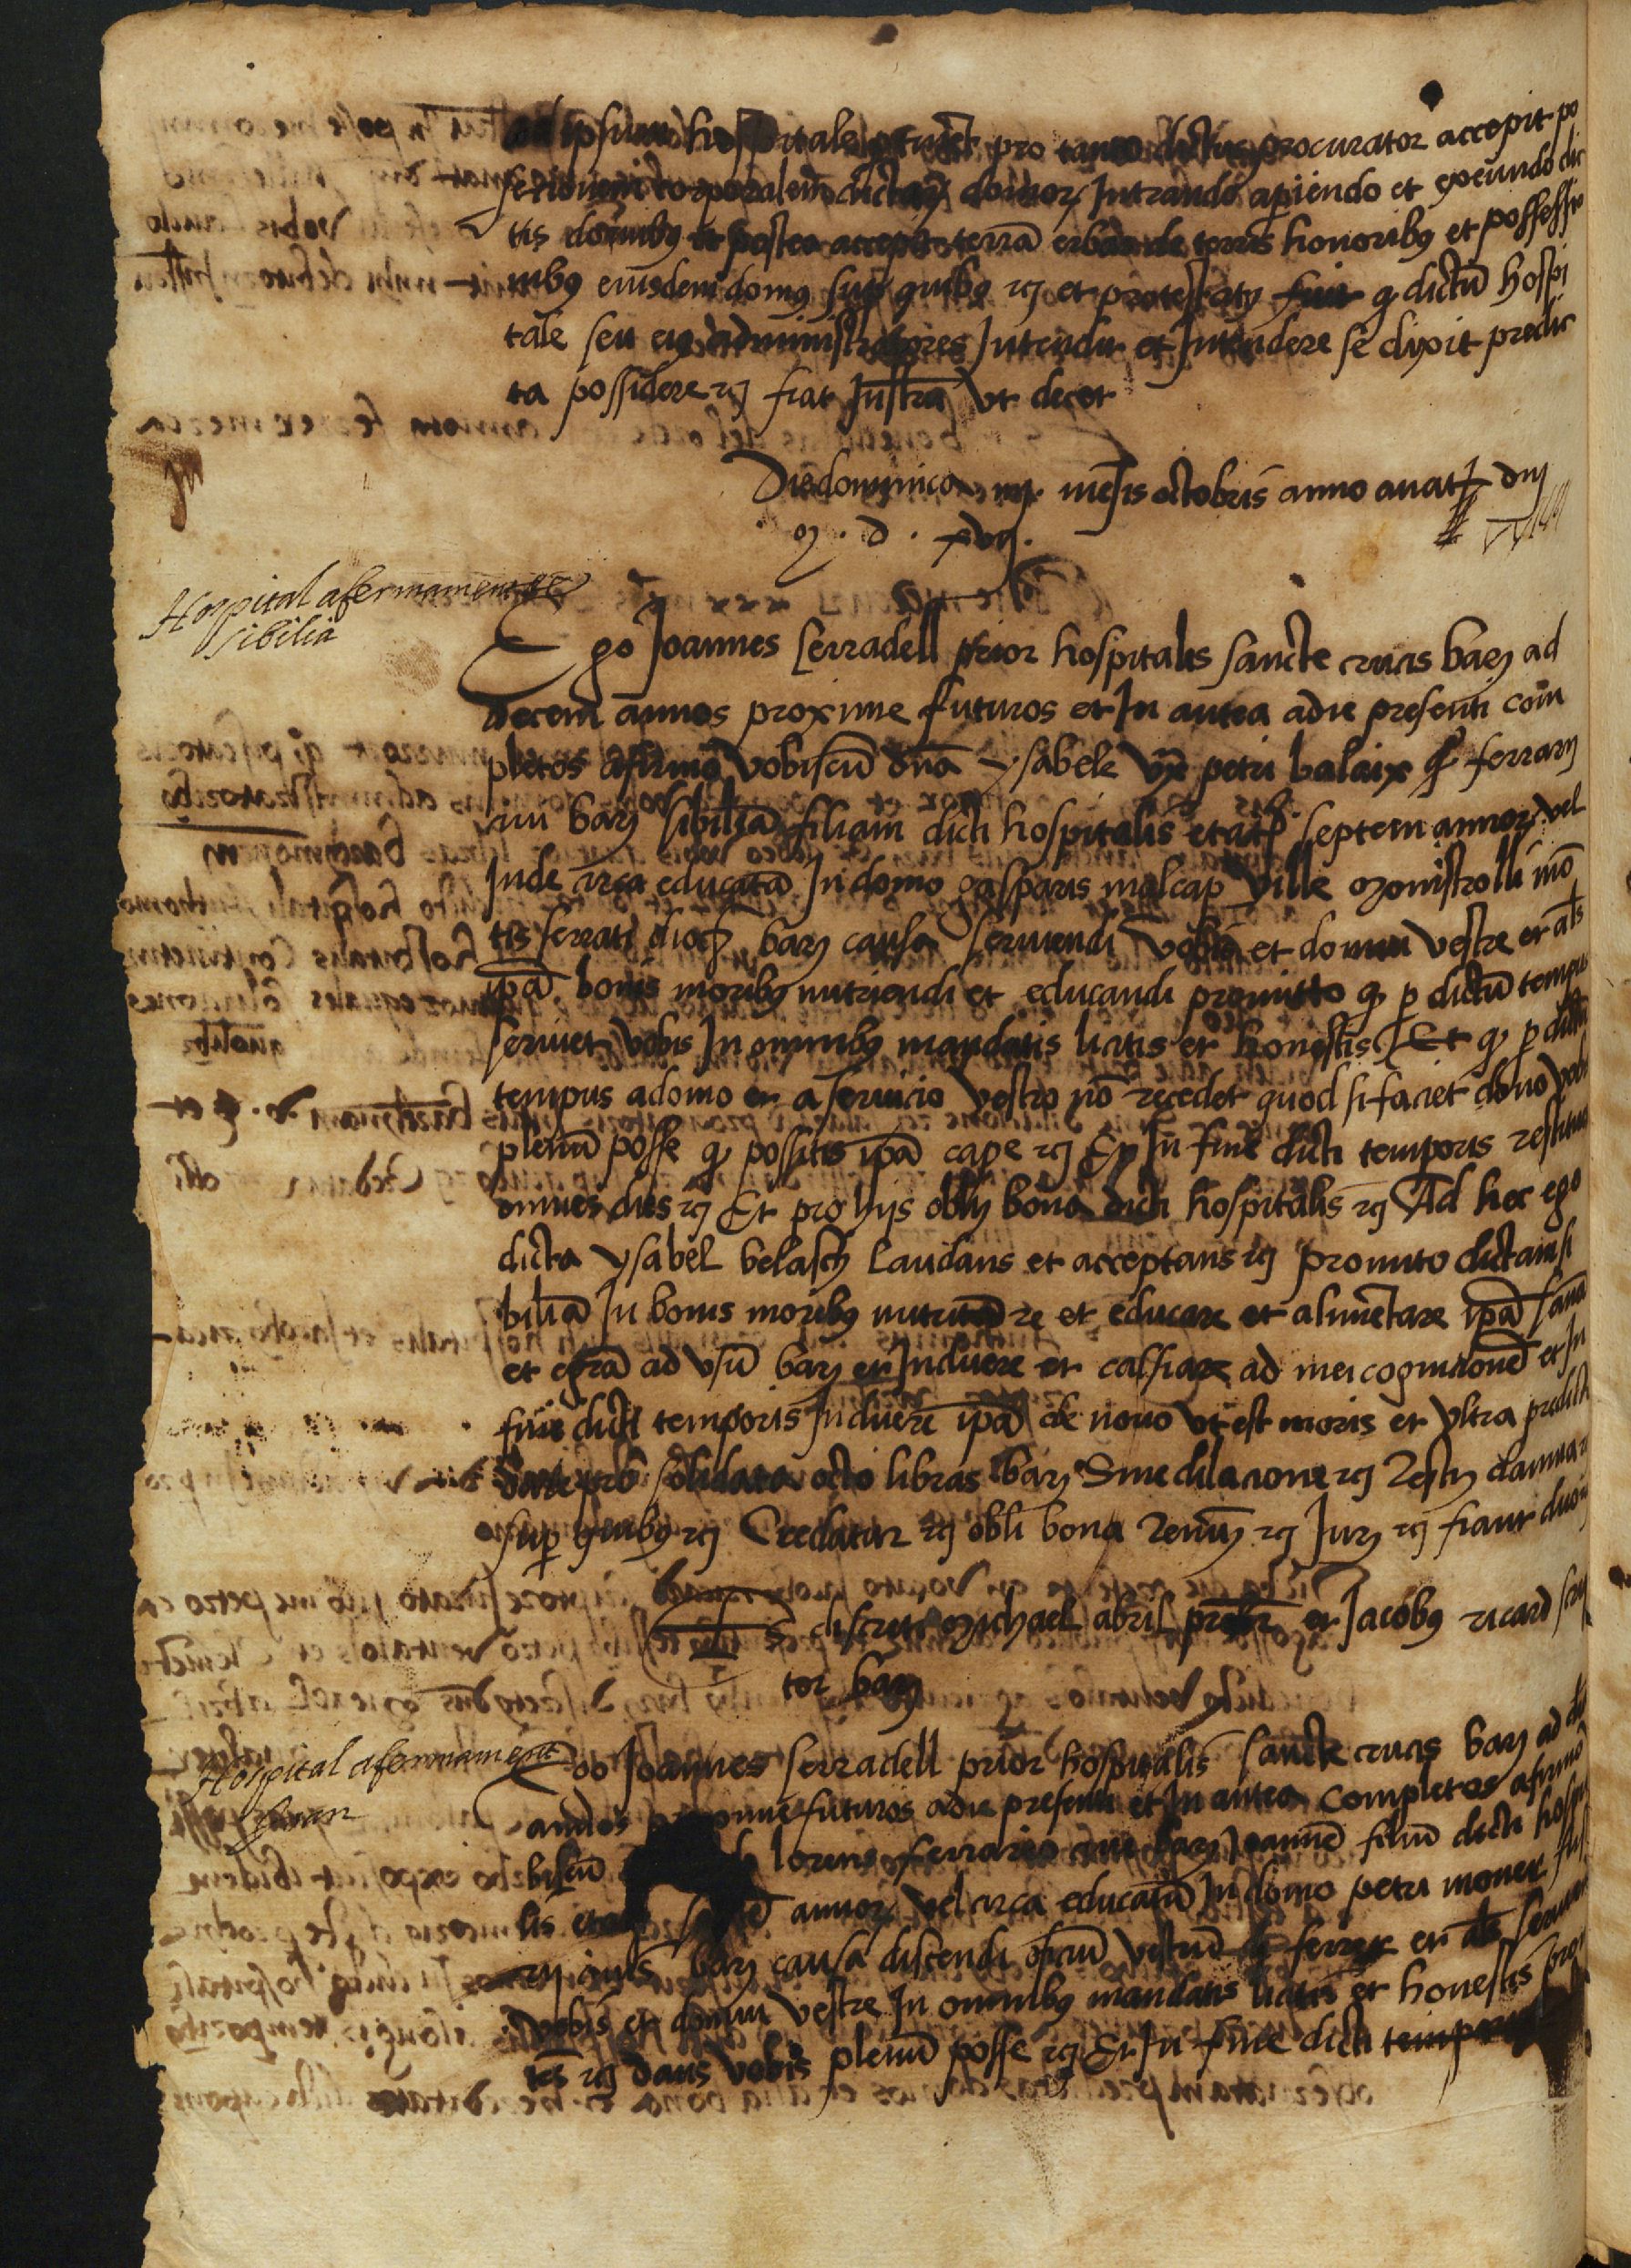 ad ipsum hospitale ptinet pro tanto dictus procurator accepit po
sessionem corporalem dictaȝ domorȝ Intrando apiendo et exeundo dic
tis domibȝ et postea accepit terrā erbam de terris honoribȝ et possessio
nibȝ eiusdem domȝ sup quibȝ rȝ et protestatȝ fuit q dictū hospi
tale seu eiȝ administratores Intendit et Intendere se dixit predic
ta possidere rȝ fiat Instrā vt decet
Die dominica iiij mēsis octobris anno a nat dnj
M · d · xvij ·
Hospital afermament de
sibilia
Ego Joannes serradell prior hospitalis sancte crucis barȝ ad
decem annos proxime futuros et In antea a die presenti com
pletos afirmo vobiscū dn̄a ysabele vx̄ petri balaix q ferrarȝ
ciui barȝ sibiliā filiam dicti hospitalis etatȝ septem annorȝ vel
Inde circa educatā In domo gasparis malcap ville monistrolli mō
tis serrati diocȝ barȝ causa seruiendi vobis et domui vestre et als
ip̄a bonis moribȝ nutriendi et educandi promitto q p dictū tempus
seruiet vobis In omnibȝ mandatis licitis et honestis Et q p dictū
tempus a domo et a seruicio vestro nō recedet quod si faciet dono vob
plenū posse q possitis ip̄a cape rȝ Et In fine dicti temporis restitue
omnes dies rȝ Et pro hijs oblȝ bona dicti hospitalis rȝ Ad hec ego
dicta ysabel belasch laudans et acceptans rȝ promito dictam si
biliā In bonis moribȝ nutrire et educare et alimētare ip̄ā sanā
et egrā ad vsū barȝ et Induere et calsiare ad mei cognicionē et In
fine dicti temporis Induere ip̄ā de nouo vt est moris et vltra predicta
dare pro solidata octo libras barȝ Sine dilacione rȝ Restȝ damna rȝ
sup quibȝ rȝ Credatur rȝ obli bona Renūȝ rȝ Jurȝ rȝ fiant duo
Ts discret michael abril prebr et Jacobȝ ricard scrip
tor barȝ
Hospital afermament
Joan
Ego Joannes serradell prior hospitalis sancte crucis barȝ ad
annos proxime futuros a die presenti et In antea completos afirmo
biscū lorens ferrario ciui barȝ Joannē filiū dicti hospi
lis etatȝ annorȝ vel circa educatū In domo petri moner
ciuis barȝ causa discendi oficiū vestrū d ferrer et als seruiendi
vobis et domui vestre In omnibȝ mandatis licitis et honestis
tes rȝ dans vobis plenū posse rȝ Et In fine dicti temporis